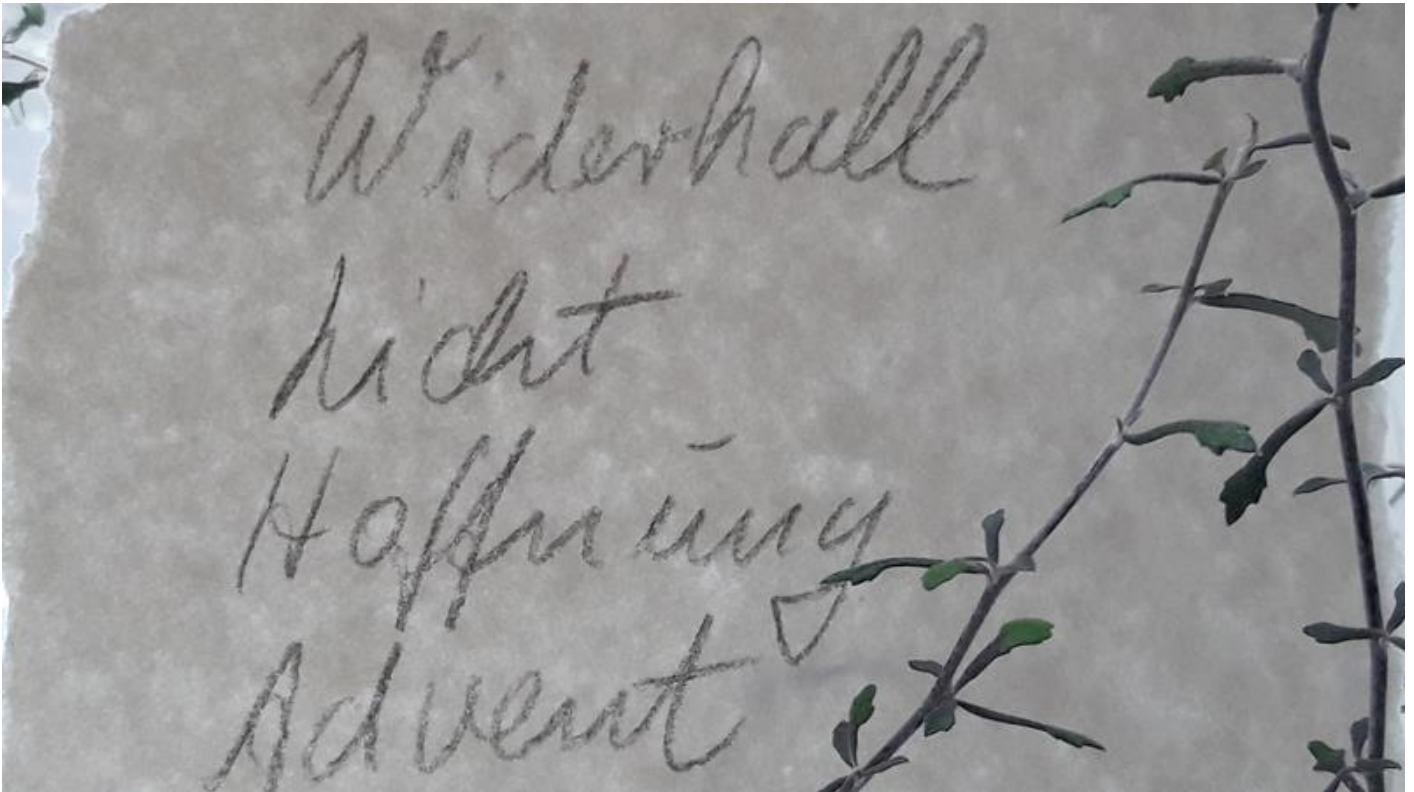 Widerhall
Licht
Hoffnung
Advent